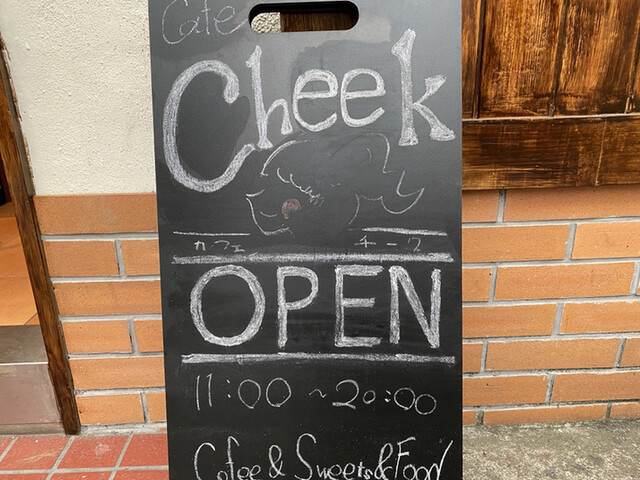 Cafe
Cheek
カフェ チーク
OPEN
11:00 ~ 20:00
Cofee & Sweets & Food